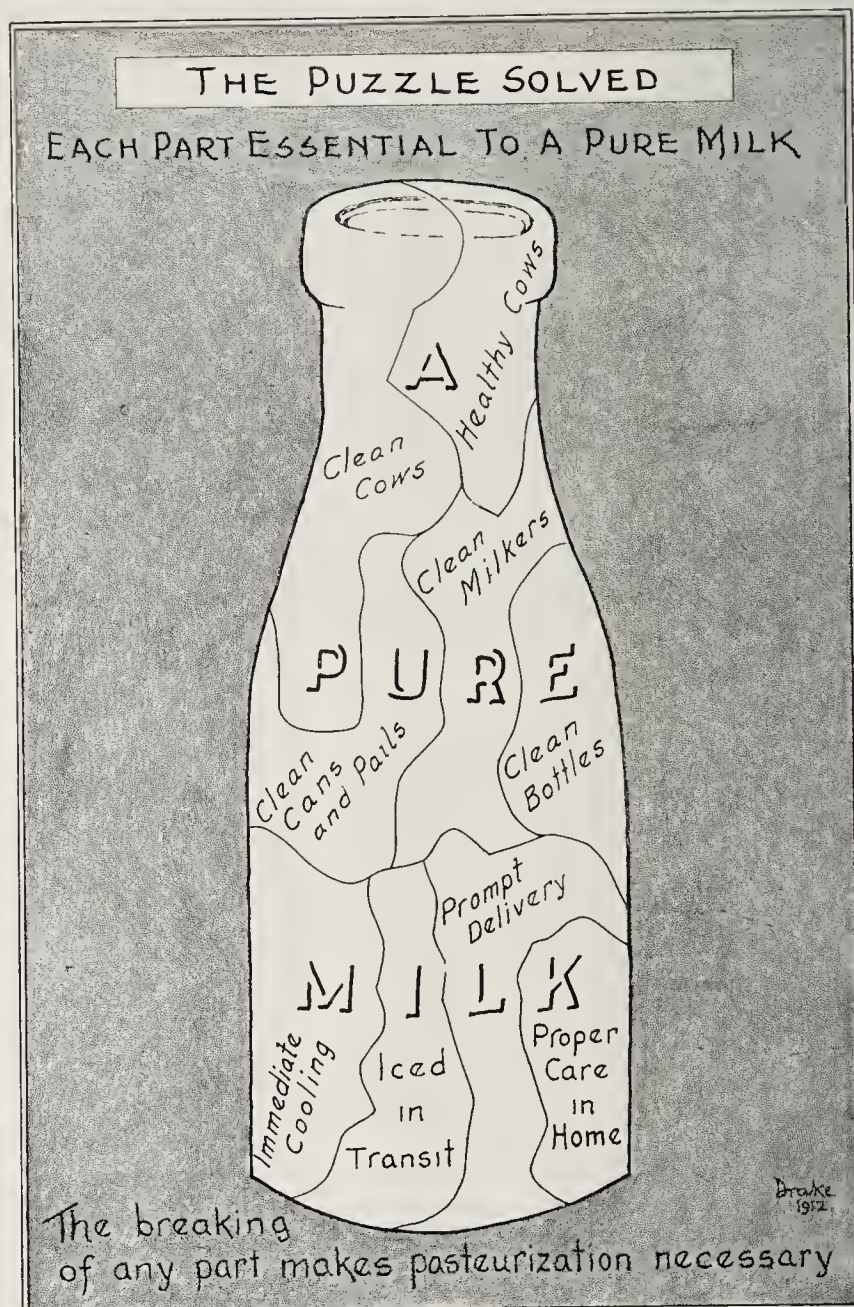 THE PUZZLE SOLVED
EACH PART ESSENTIAL TO A PURE MILK
A
Healthy Cows
Clean
Cows
Clean
Milkers
PURE
Clean
Cans
and Pails
Clean
Bottles
Prompt
Delivery
MILK
Immediate
Cooling
Iced
in
Transit
Proper
Care
in
Home
Drake
1912
The breaking
of any part makes pasteurization necessary